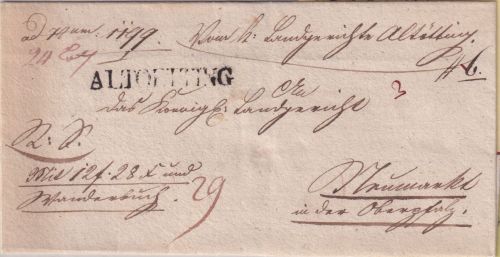 ad Num. 1499. Vom k: Landgerichte Altötting.
ALTOETTING
An
das Königl: Landgericht
3
R. S.
Mit 12 f. 28 x und
Wanderbuch.
29
Neumarkt
in der Oberpfalz.